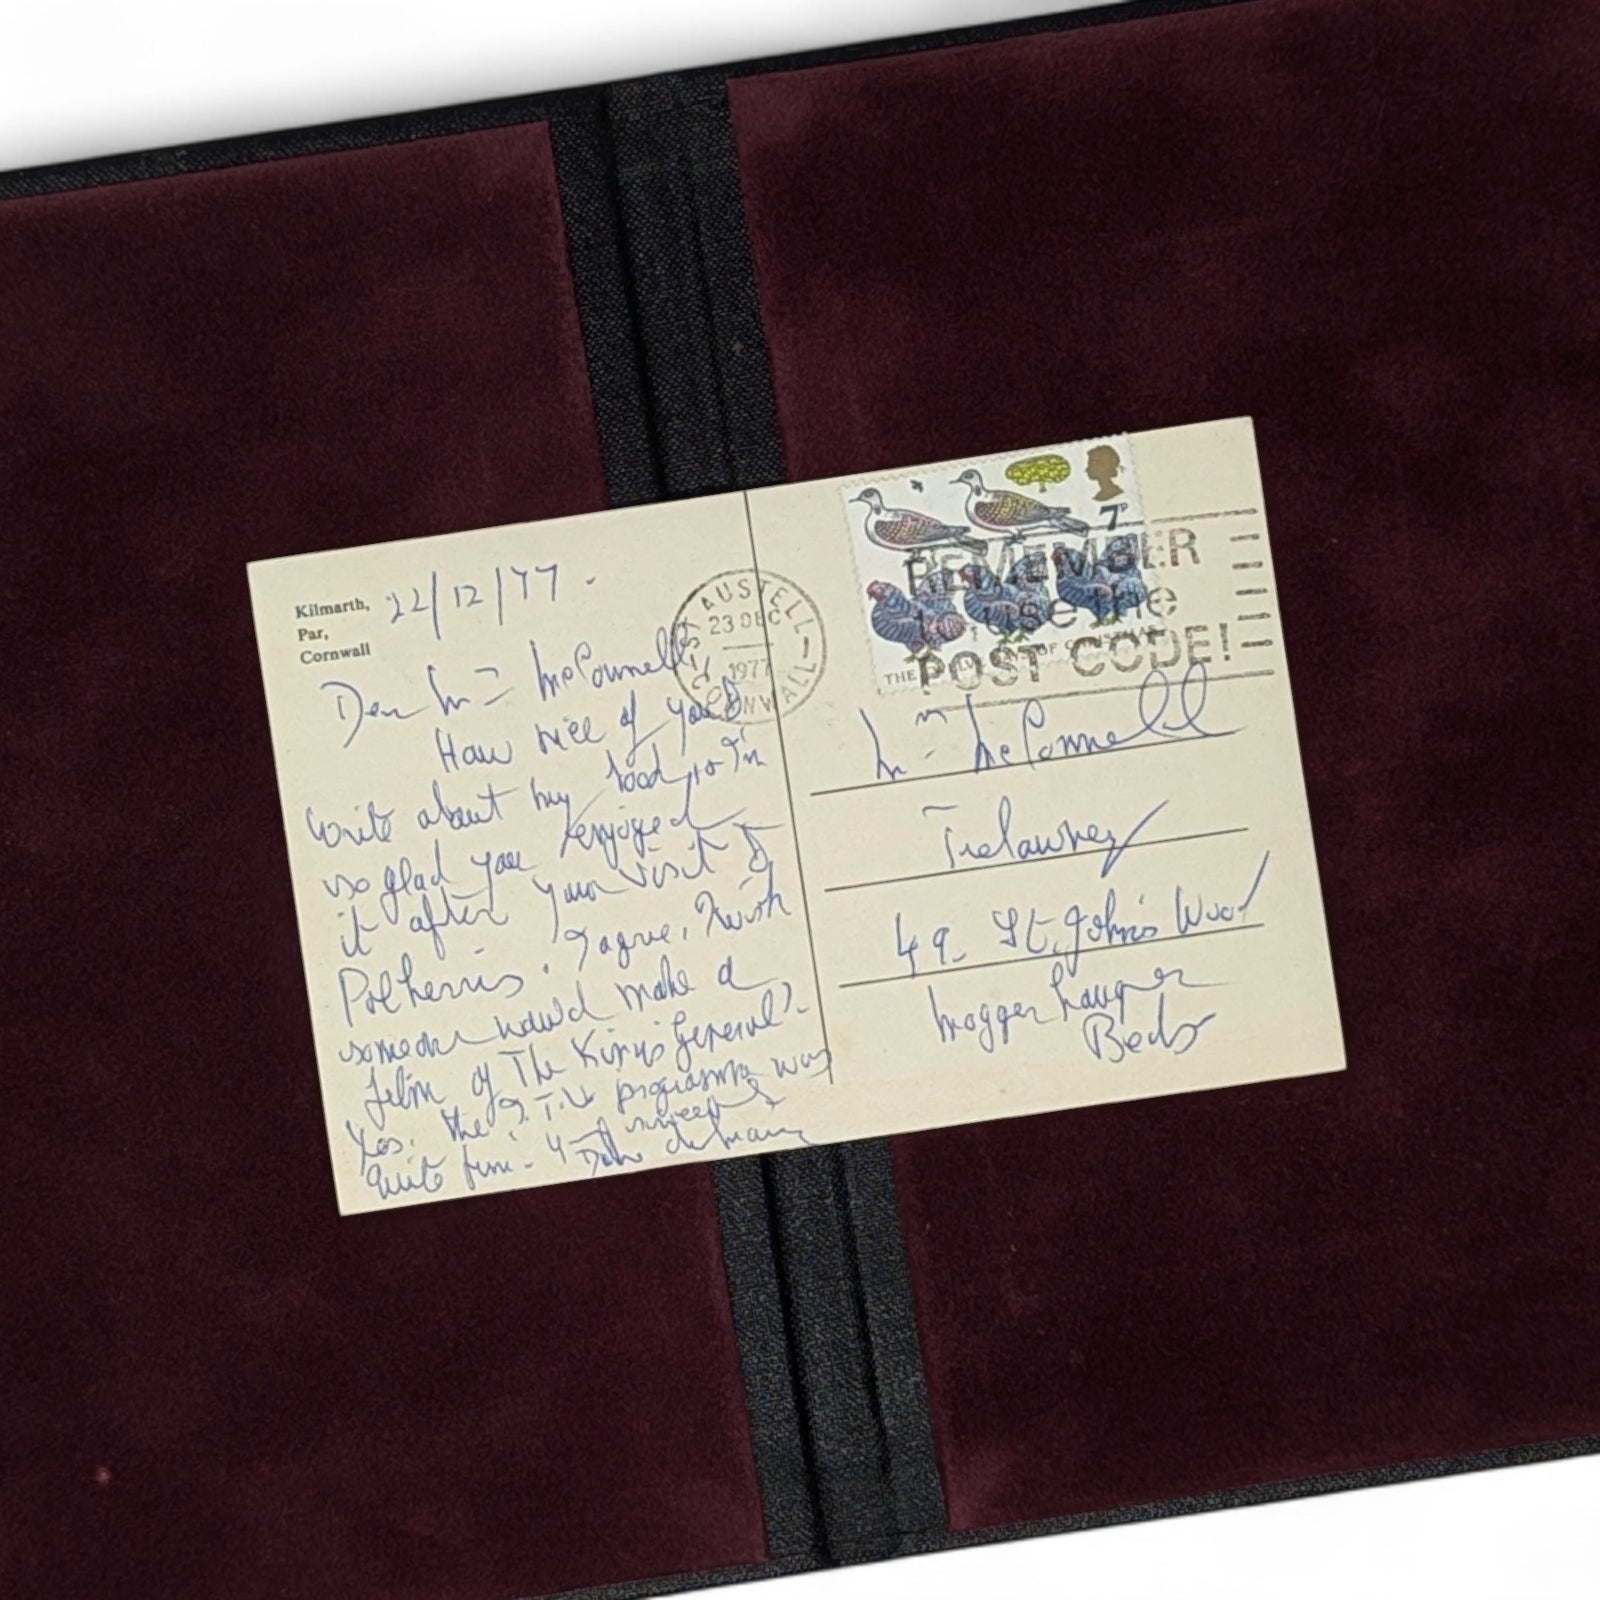 Kilmarth,
Par,
Cornwall
22/12/77.
Dear Mrs McConnell,
How nice of you to
write about my book, so I'm
so glad you enjoyed
it after your visit to
Polkerris. I agree, I wish
someone would make a
film of The King's General.
Yes, the T.V. programme was
quite fun.
Daphne du Maurier
ST AUSTELL
23 DEC
1977
CORNWALL
7P
REMEMBER
to use the
POST CODE!
THE OF CHRISTMAS
Mrs McConnell
Trelawney
49 St. John's Wood
Moggerhanger
Beds